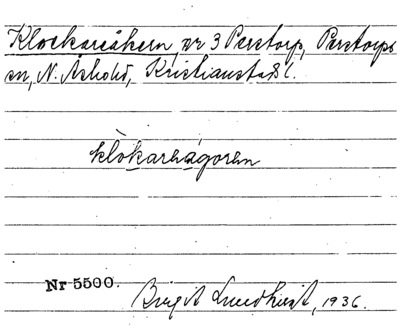 Klockaråkern, nr 3 Perstorp, Perstorps
sn, N. Åsbohd, Kristianstads l.
klòkaraågoren
Nr 5500.
Birgit Lundkvist, 1936.